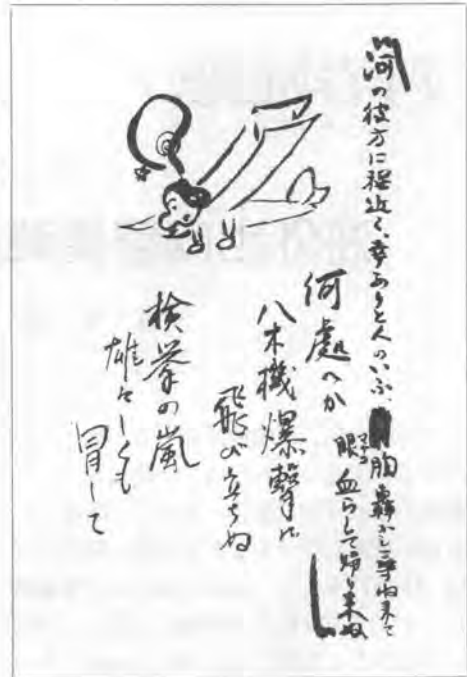 河の彼方に程近く、幸ありと人のいふ
胸轟かし尋ね来て
眼血らして帰り来ぬ
マナコ
何處へか
八木機爆撃に
飛び立ちぬ
検挙の嵐
雄々しくも
冒して